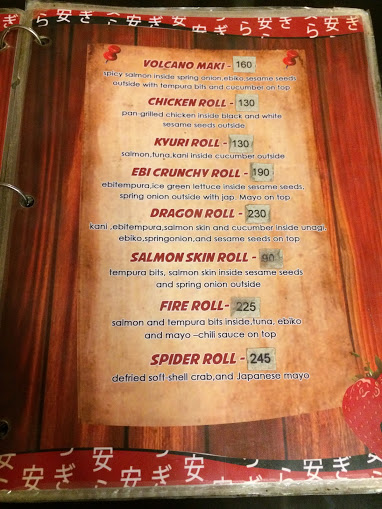 ら安ぎ ら安ぎ
VOLCANO MAKI - 160
spicy salmon inside spring onion,ebiko,sesame seeds
outside with tempura bits and cucumber on top
CHICKEN ROLL - 130
pan-grilled chicken inside black and white
sesame seeds outside
KYURI ROLL - 130
salmon,tuna,kani inside cucumber outside
EBI CRUNCHY ROLL - 190
ebitempura,ice green lettuce inside sesame seeds,
spring onion outside with jap. Mayo on top
DRAGON ROLL - 230
kani ,ebitempura,salmon skin and cucumber inside unagi,
ebiko,springonion,and sesame seeds on top
SALMON SKIN ROLL - 90
tempura bits, salmon skin inside sesame seeds
and spring onion outside
FIRE ROLL- 225
salmon and tempura bits inside,tuna, ebiko
and mayo –chili sauce on top
SPIDER ROLL - 245
defried soft-shell crab,and Japanese mayo
安ぎ ら安ぎ ら安ぎ